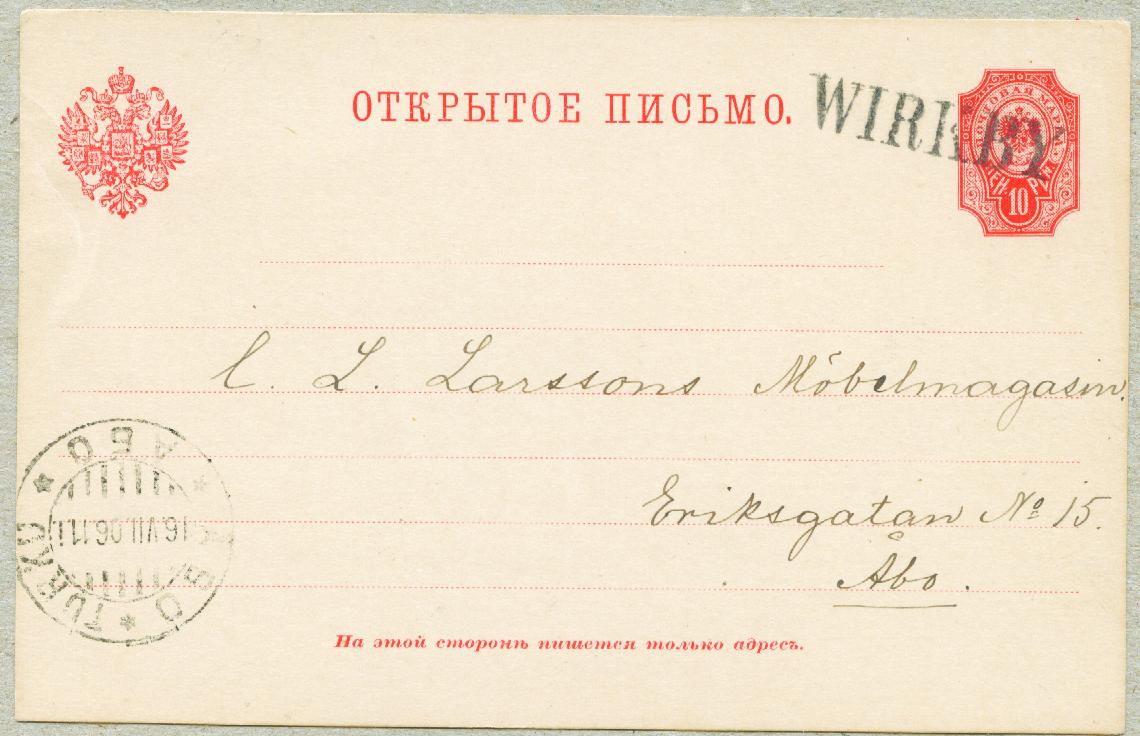 ОТКРЫТОЕ ПИСЬМО.
WIRKBY
ПОЧТОВАЯ МАРКА
10
C. L. Larssons Möbelmagasin.
Eriksgatan No 15.
Åbo.
ÅBO * TURKU * АБО *
16.VII.06.11.i.
На этой сторонѣ пишется только адресъ.